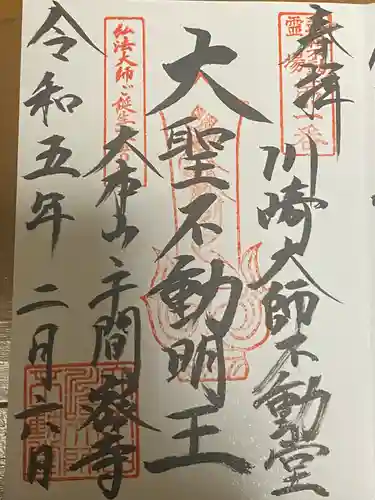 奉拝
川崎大師不動堂
大聖不動明王
大本山平間寺
令和五年二月六日
弘法大師ご誕生
霊場
一番